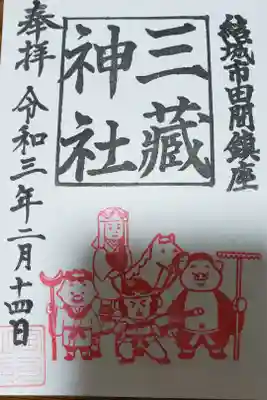 結城市田間鎮座
三蔵
神社
奉拝
令和三年二月十四日